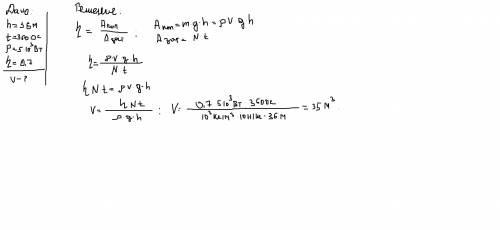 Дано:
h=36м
t=3600с
P=5 10³ Вт
η=0.7
V-?
Решение.
η = Апол / Азат. Апол = m g h = ρ V g h
Азат = N t
η = ρ V g h / N t
η N t = ρ V g h
V = η N t / ρ g h ; V = 0,7 5 10³ Вт 3600с / 10³ кг/м³ 10Н/кг · 36м = 35 м³